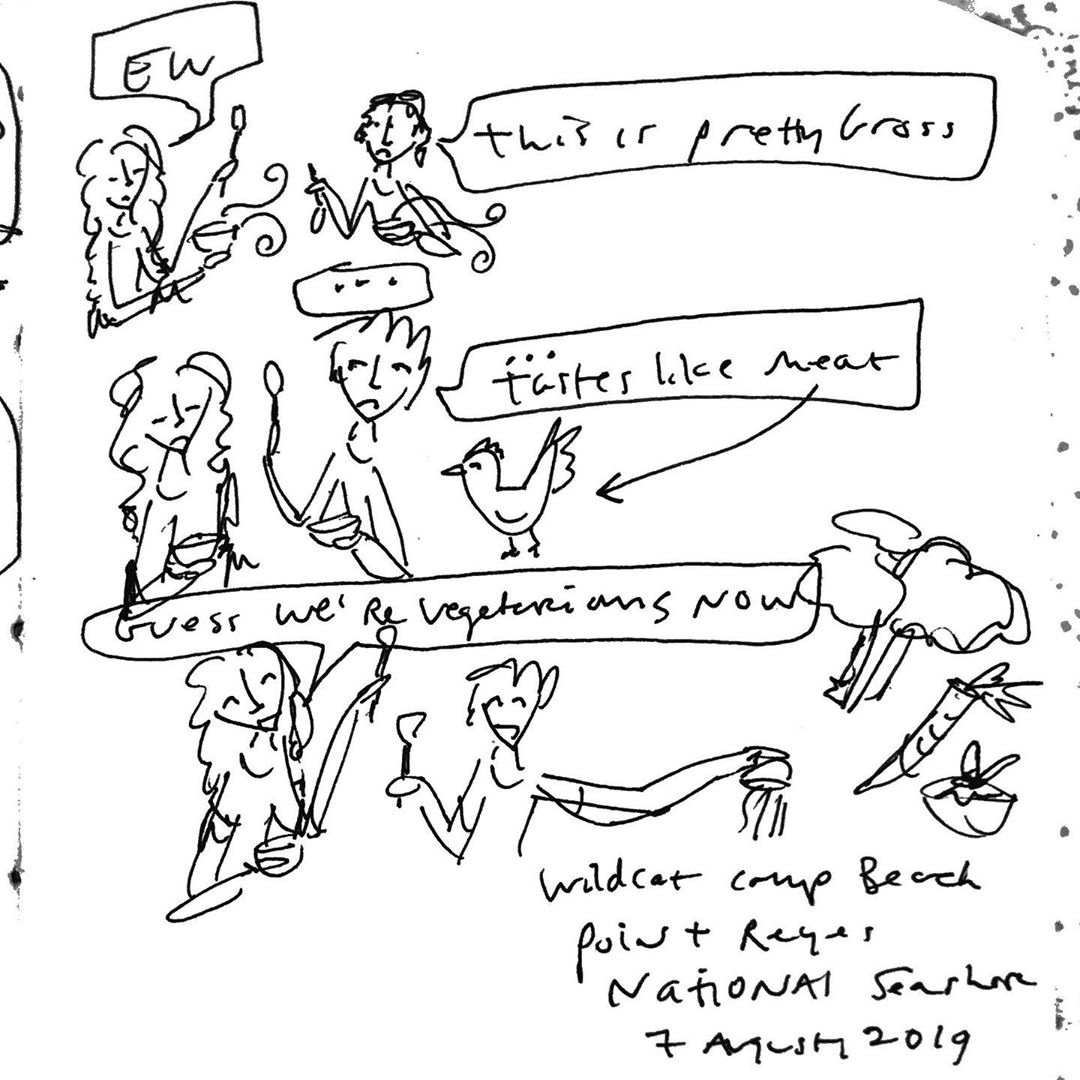 EW
this is pretty Gross
...
...tastes like meat
Guess we're vegetarians now
Wildcat camp Beach
Point Reyes
National Seashore
7 August 2019